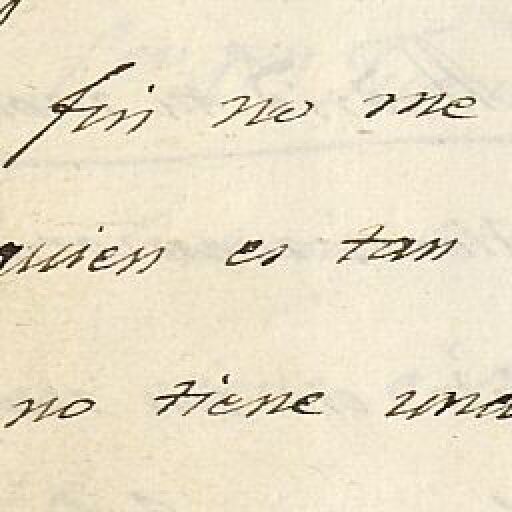 fin no me
quien es tan
no tiene una